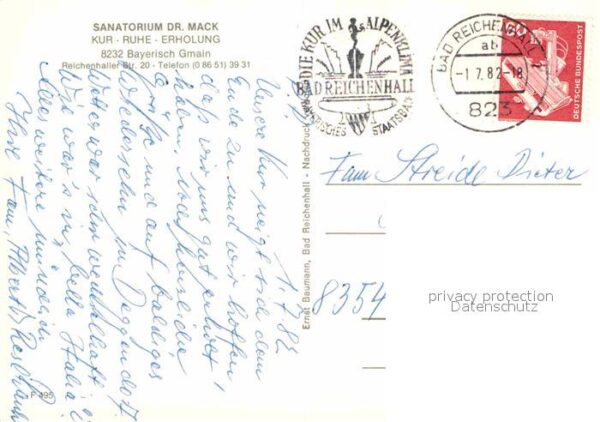 SANATORIUM DR. MACK
KUR - RUHE - ERHOLUNG
8232 Bayerisch Gmain
Reichenhaller Str. 20 - Telefon (0 86 51) 39 31
1.7.82
Unsere Kur neigt sich dem
Ende zu und wir hoffen,
daß wir uns gut erholt
haben, viele
Grüße und auf baldiges
Wiedersehn in Deggendorf
Wetter war sehr wechselhaft
Wie war's in "bella Italia"?
Alles weitere mündlich
Ihre Fam. Albert
F 495
Ernst Baumann, Bad Reichenhall - Nachdruck
DIE KUR IM ALPENKLIMA
BAD REICHENHALL
BAYERISCHES STAATSBAD
BAD REICHENHALL 1
ab
-1.7.82-18
823
60
DEUTSCHE BUNDESPOST
Fam. Streide Dieter
8354
privacy protection
Datenschutz